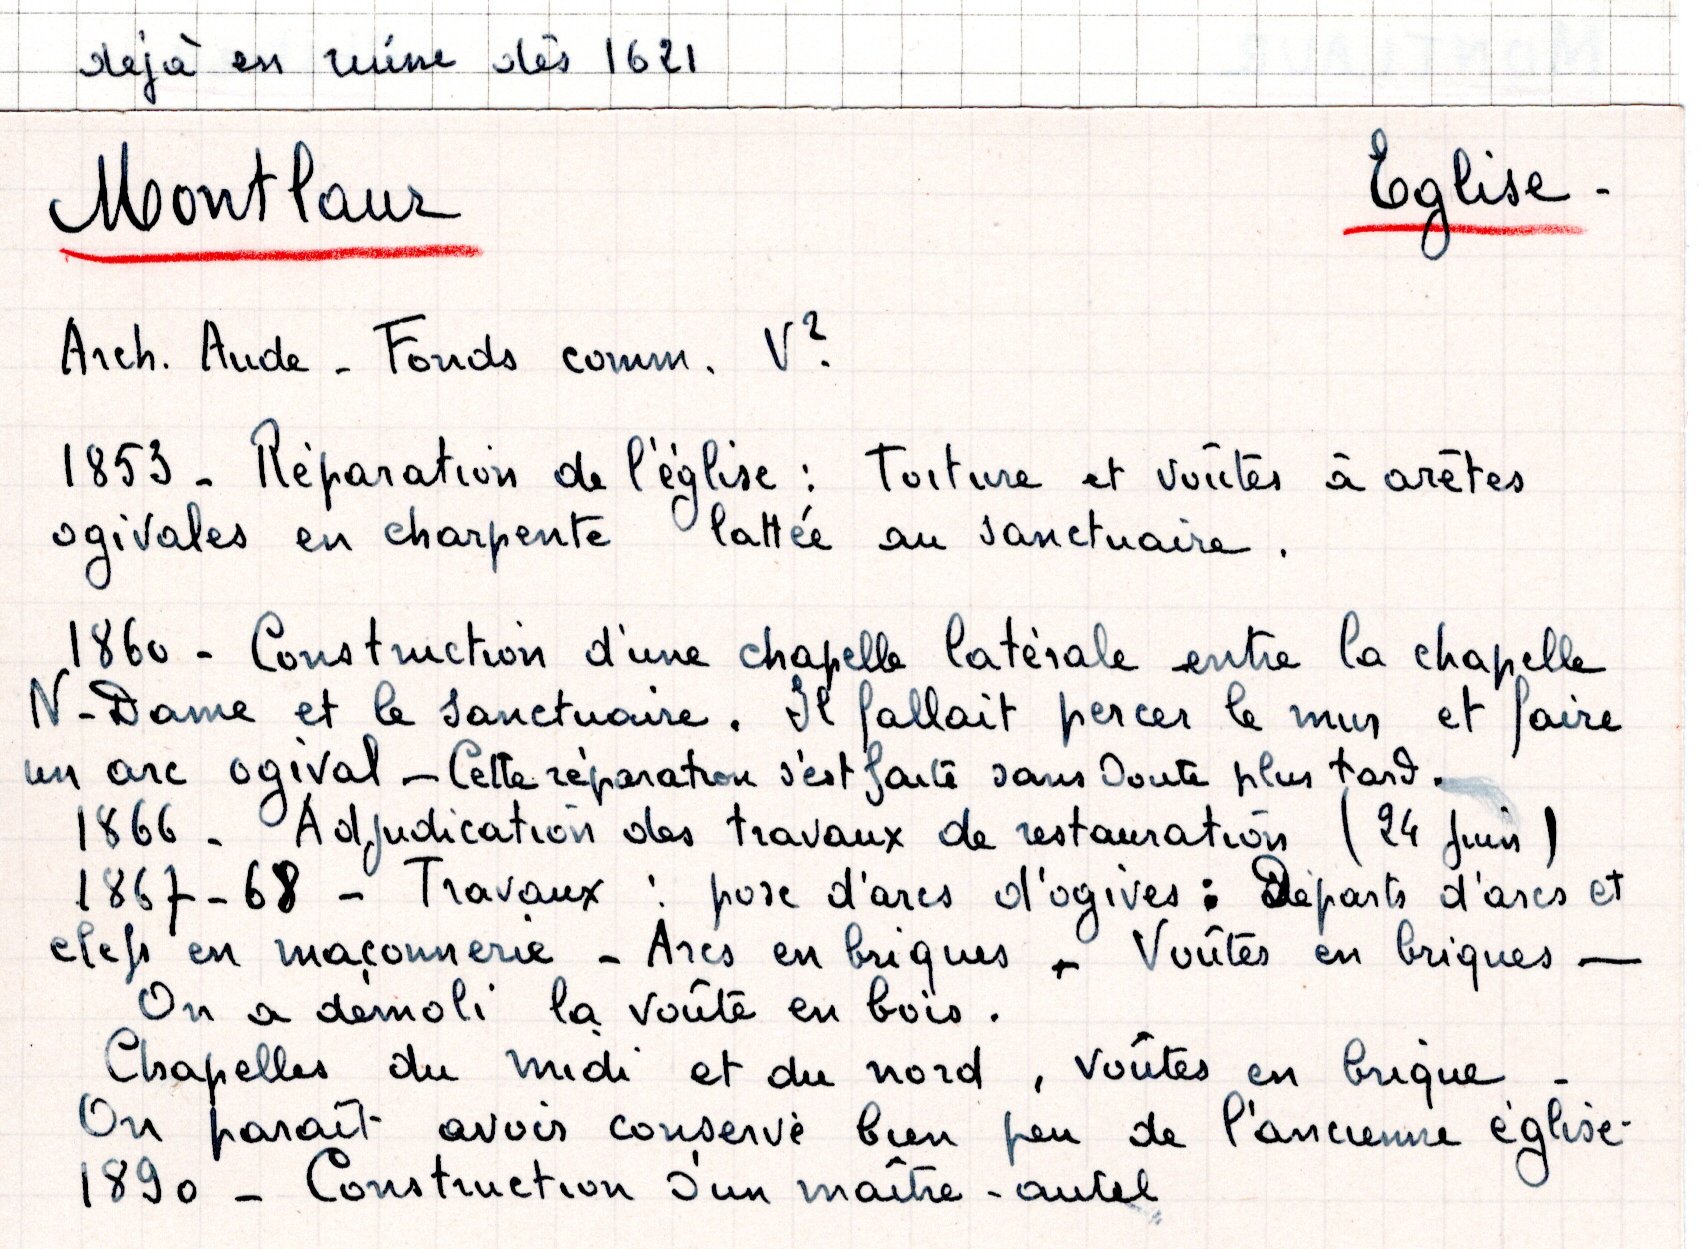 dejà en ruine dès 1621
Montlaur Eglise -
Arch. Aude - Fonds comm. V².
1853 - Réparation de l'église : Toiture et voûtes à arêtes
ogivales en charpente lattée au sanctuaire.
1860 - Construction d'une chapelle latérale entre la chapelle
N-Dame et le sanctuaire. Il fallait percer le mur et faire
un arc ogival - Cette réparation s'est faite sans doute plus tard.
1866 - Adjudication des travaux de restauration (24 juin)
1867-68 - Travaux : pose d'arcs d'ogives : Départs d'arcs et
clefs en maçonnerie - Arcs en briques - Voûtes en briques -
On a démoli la voûte en bois.
Chapelles du midi et du nord, voûtes en brique -
On paraît avoir conservé bien peu de l'ancienne église -
1890 - Construction d'un maître-autel